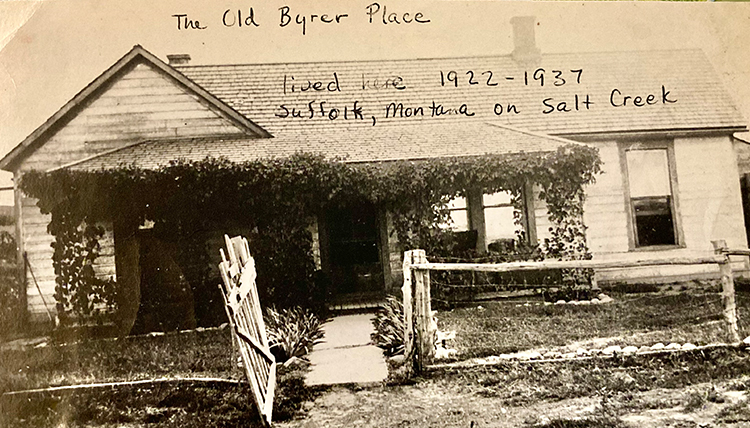 The Old Byrer Place
lived here 1922-1937
Suffolk, Montana on Salt Creek